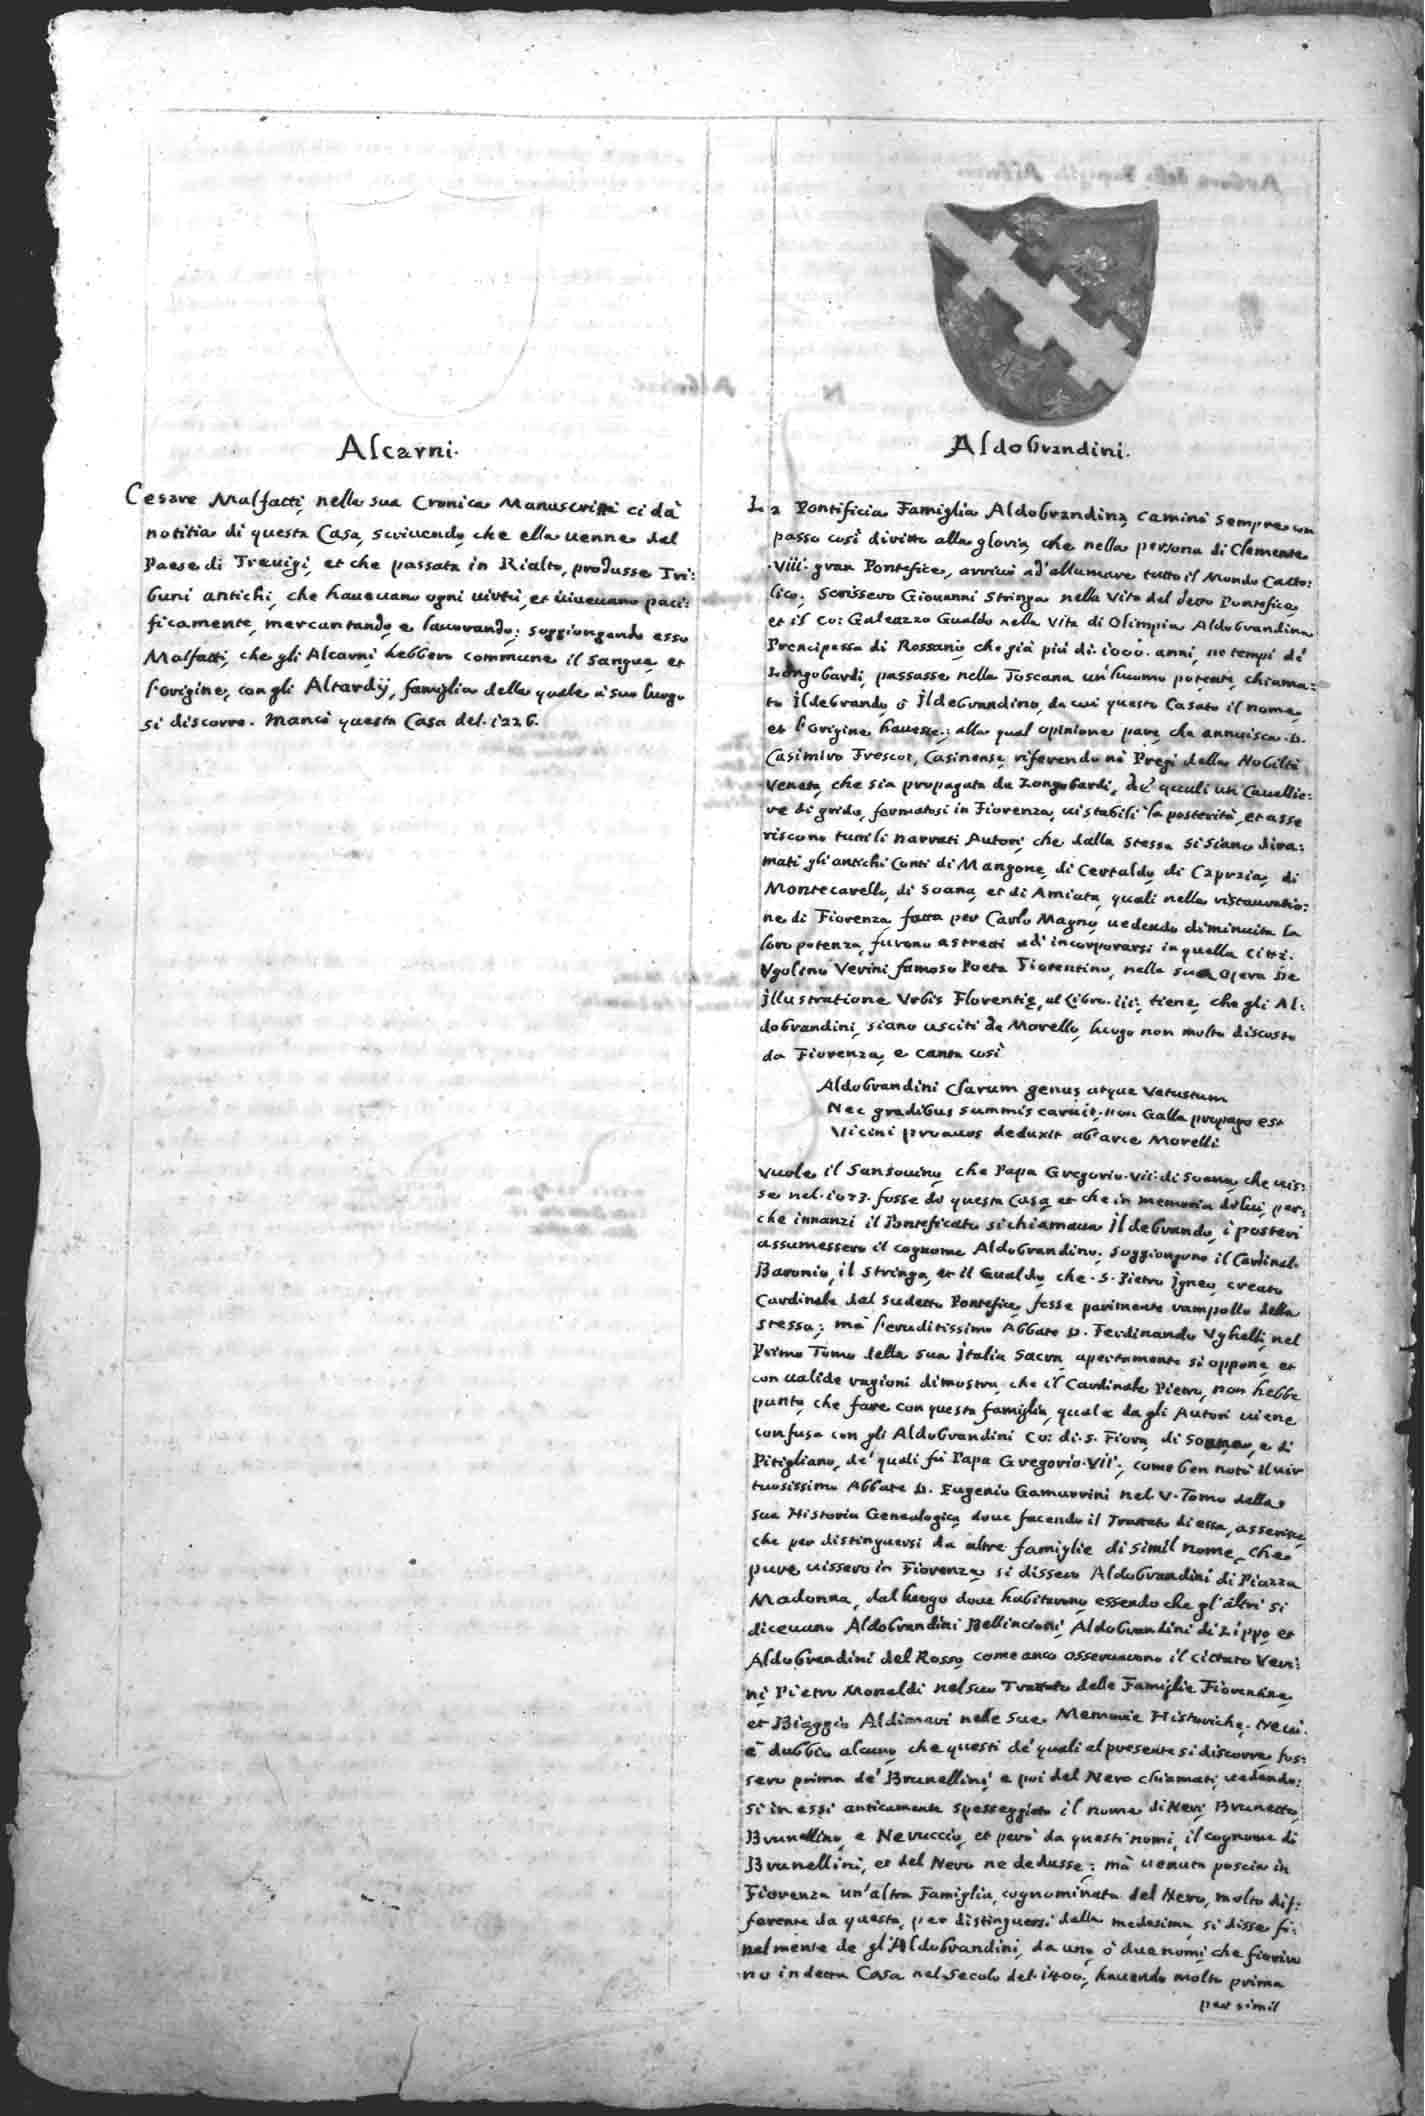 Alcarni.
Cesare Malfatti, nella sua Cronica Manuscritta ci dà
notitia di questa Casa, scriuendo, che ella uenne dal
Paese di Treuigi, et che passata in Rialto, produsse Tri:
buni antichi, che haueuano ogni uirtù, et uiueuano paci:
ficamente, mercantando, e lauorando; soggiongendo esso
Malfatti, che gli Alcarni hebbero commune il sangue, et
l'origine, con gli Altardij, famiglia della quale à suo luogo
si discorre. Mancò questa Casa del. 1226.
Aldobrandini.
La Pontificia Famiglia Aldobrandina, caminò sempre con
passo così diritto alla gloria, che nella persona di Clemente
.Viii. gran Pontefice, arriuò ad' allumare tutto il Mondo Catto:
lico. Scrissero Giouanni Stringa nella Vita del detto Pontefice
et il Co: Galeazzo Gualdo nella Vita di Olimpia Aldobrandina
Prencipessa di Rossano, che già più di. 1000. anni, ne tempi de
Longobardi, passasse nella Toscana un' huomo potente, chiama:
to Ildebrando, ò Ildebrandino, da cui questo Casato il nome,
et l'origine hauesse; alla qual opinione pare, che annuisca. D.
Casimiro Frescot, Casinense, riferendo nè Pregi della Nobiltà
Veneta, che sia propagata da Longobardi, de' quali un Caualli:
re di grido, formatosi in Fiorenza, ui stabilì la posterità, et asse
riscono tutti li narrati Autori, che dalla stessa si siano dira:
mati gli antichi Conti di Mangone, di Certaldo, di Capraia, di
Montecarello, di Soana, et di Amiata, quali nella ristauratio:
ne di Fiorenza, fatta per Carlo Magno, uedendo diminuita la
loro potenza, furono astretti ad' incorporarsi in quella Città.
Vgolino Verini famoso Poeta Fiorentino, nella sua Opera De
Illustratione Vrbis Florentię, al Libro. iii. tiene, che gli Al:
dobrandini, siano usciti da Morello, luogo non molto discosto
da Fiorenza, e canta così
Aldobrandini clarum genus atque Vetustum
Nec gradibus summis caruit, non Galla propago est
Vicini proauos deduxit ab' arce Morelli
Vuole il Sansouino, che Papa Gregorio. Vii. di Soana, che uis:
se nel. 1073. fosse di questa Casa, et che in memoria di lui, per:
che innanzi il Ponteficato si chiamaua Ildebrando, i posteri
assumessero il cognome Aldobrandino. Soggiongono il Cardinal
Baronio, il Stringa, et il Gualdo, che. S. Pietro Igneo, creato
Cardinale dal sudetto Pontefice, fosse parimente rampollo della
stessa; mà l'eruditissimo Abbate D. Ferdinando Vghelli, nel
Primo Tomo della sua Italia Sacra, apertamente si oppone, et
con ualide ragioni dimostra, che il Cardinale Pietro, non hebbe
punto, che fare con questa famiglia, quale da gli Autori uiene
confusa con gli Aldobrandini Co: di. S. Fiora, di Soana, e di
Pitigliano, de' quali fù Papa Gregorio. Vii., come ben notò il uir
tuosissimo Abbate D. Eugenio Gamurrini nel V. Tomo della
sua Historia Genealogica, doue facendo il Trattato di essa, asserisce
che per distinguersi da altre famiglie di simil nome, che
pure uissero in Fiorenza, si dissero Aldobrandini di Piazza
Madonna, dal luogo doue habitarono, essendo che gl'altri si
diceuano Aldobrandini Bellincioni, Aldobrandini di Lippo, et
Aldobrandini del Rosso, come anco osseruarono il cittato Veri:
ni, Pietro Monaldi nel suo Trattato delle Famiglie Fiorentine,
et Biaggio Aldimari nelle sue Memorie Historiche. Ne ui
è dubbio alcuno, che questi de' quali al presente si discorre, fos:
sero prima de' Brunellini, e poi del Nero chiamati, uedendo:
si in essi anticamente spesseggiato il nome di Neri, Brunetto,
Brunellino, e Neruccio, et però da questi nomi, il cognome di
Brunellini, et del Nero ne dedusse; mà uenuta poscia in
Fiorenza un'altra Famiglia, cognominata del Nero, molto dif:
ferente da questa, per distinguersi dalla medesima, si disse fi:
nalmente de gl'Aldobrandini, da uno, ò due nomi, che fioriro
no in detta Casa nel Secolo del. 1400., hauendo molto prima
per simil